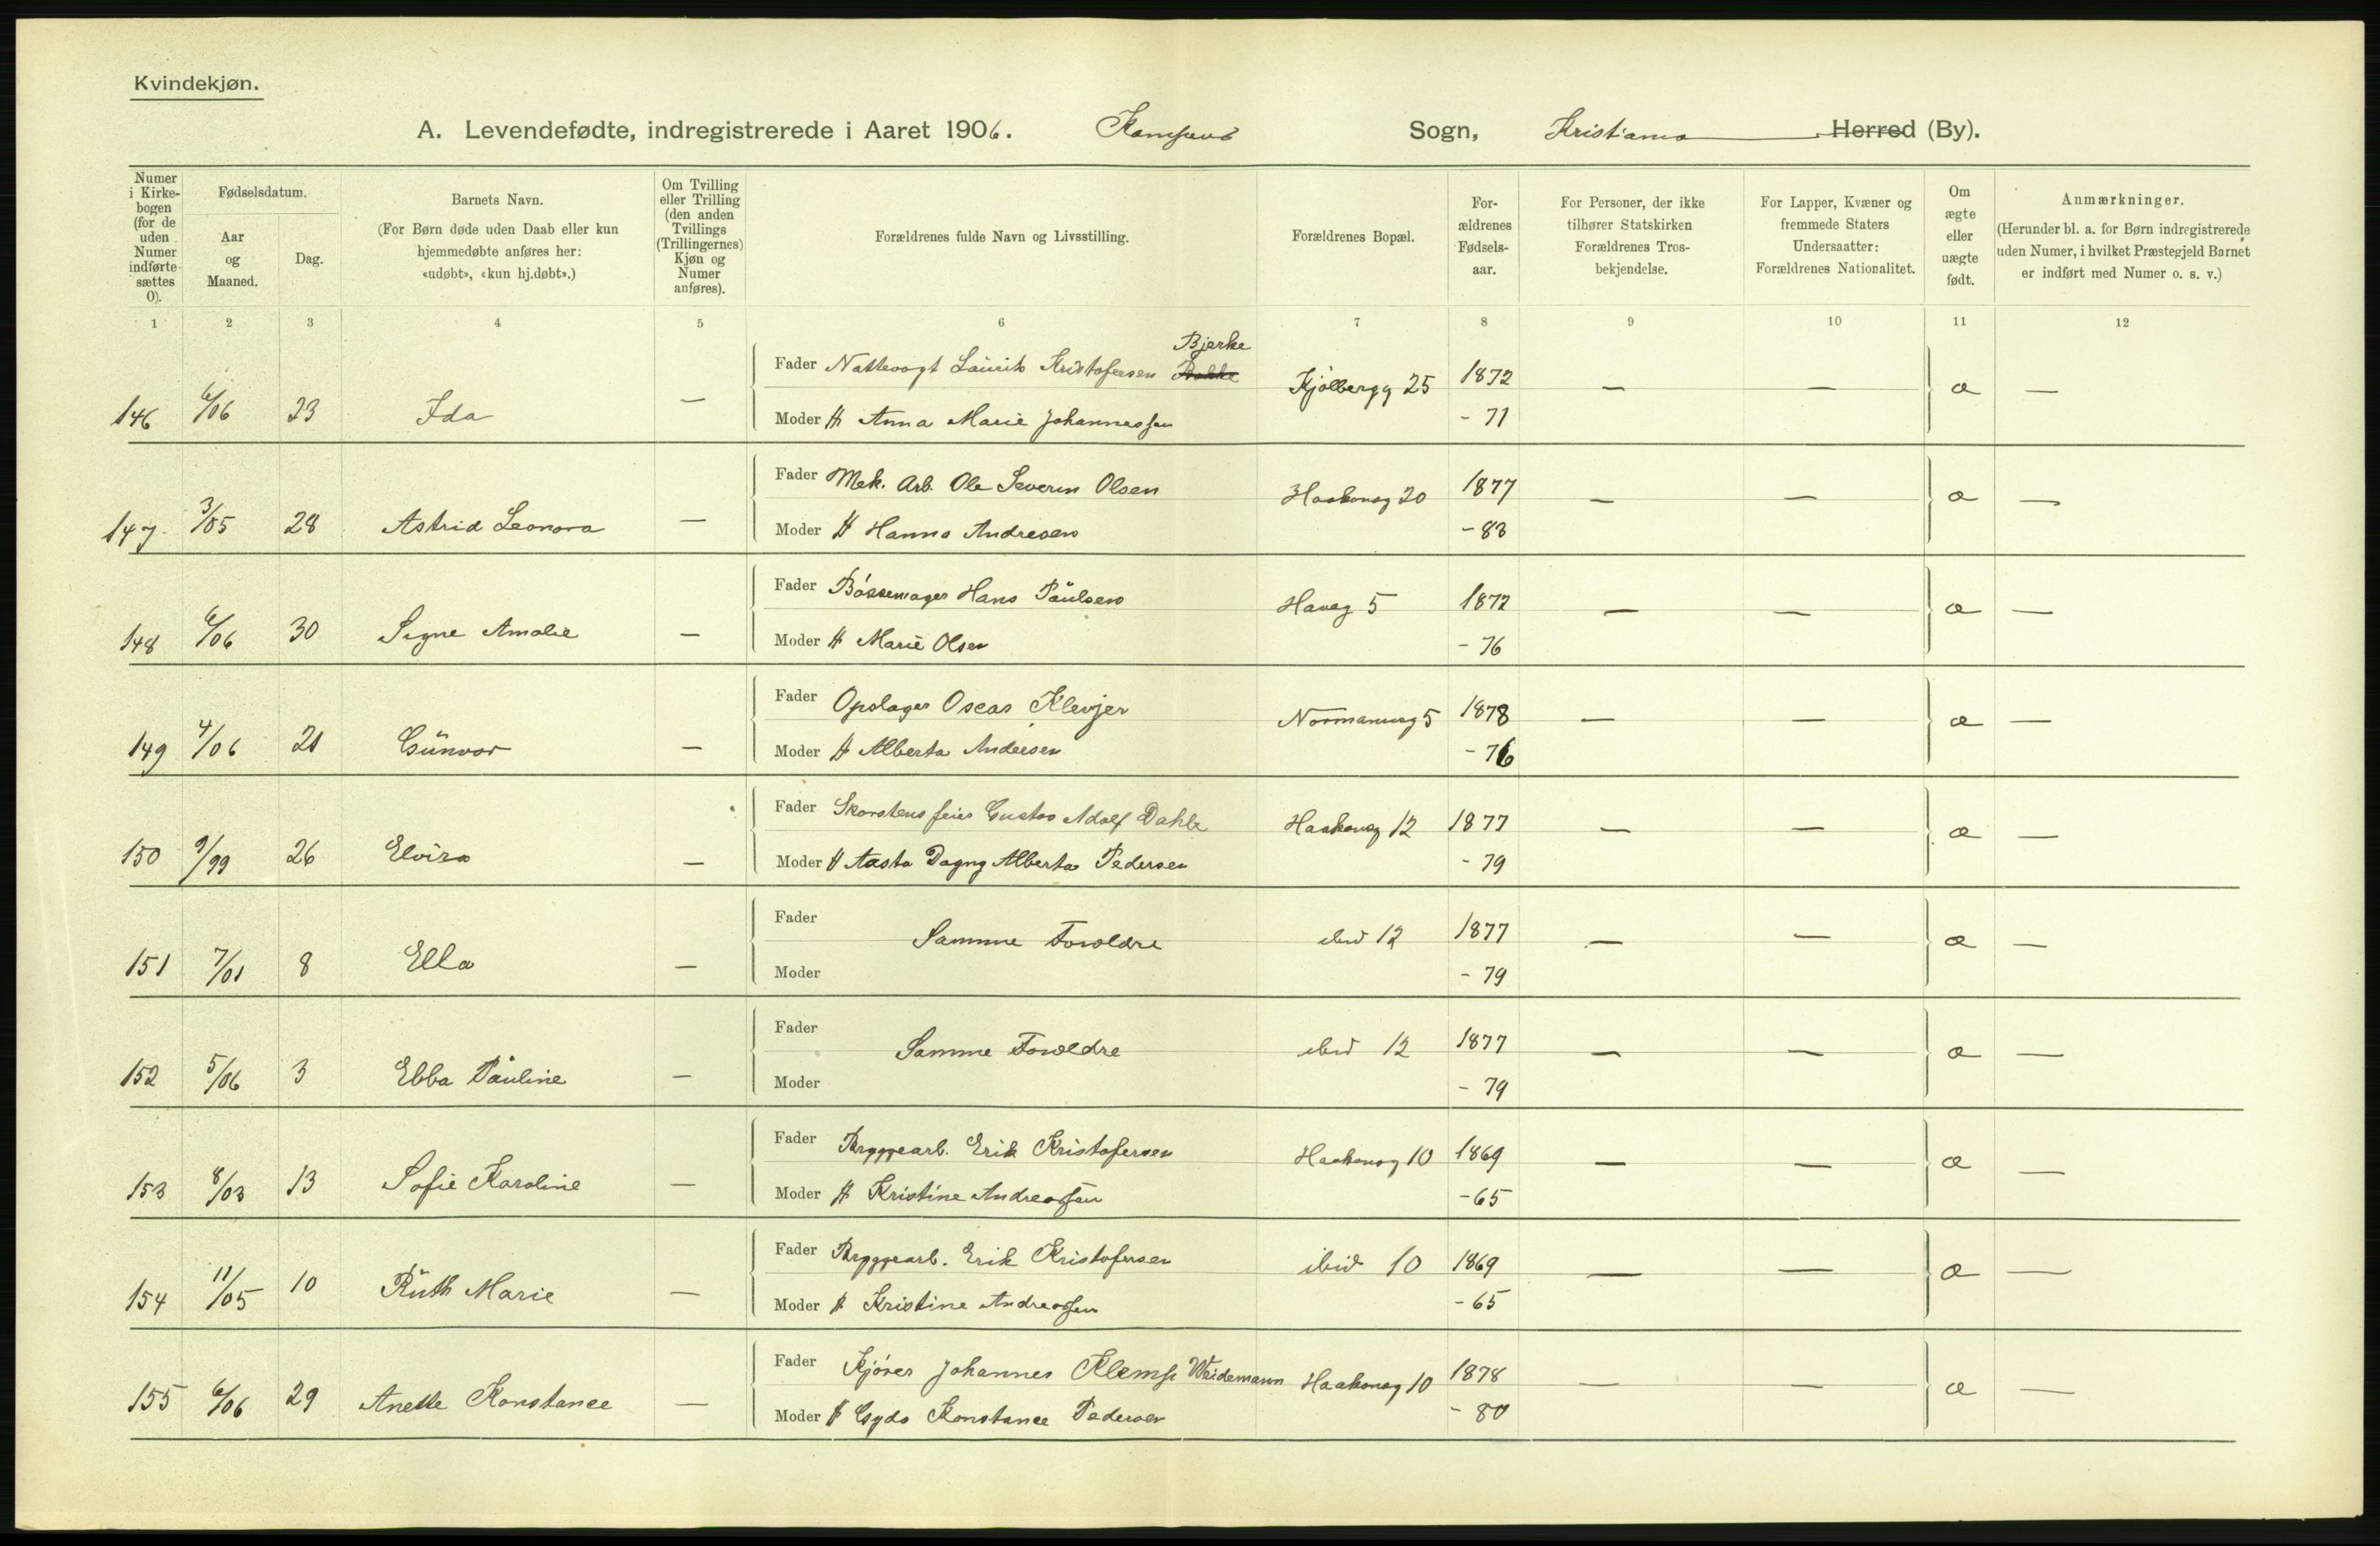 Kvindekjøn.
A. Levendefødte, indregistrerede i Aaret 1906. Kampens Sogn, Kristiania Herred (By).
Numer i Kirkebogen (for de uden Numer indførte sættes 0).
Fødselsdatum.
Aar og Maaned.
Dag.
Barnets Navn.
(For Børn døde uden Daab eller kun hjemmedøbte anføres her: «udøbt», «kun hj.døbt».)
Om Tvilling eller Trilling (den anden Tvillings (Trillingernes) Kjøn og Numer anføres).
Forældrenes fulde Navn og Livsstilling.
Forældrenes Bopæl.
Forældrenes Fødselsaar.
For Personer, der ikke tilhører Statskirken Forældrenes Trosbekjendelse.
For Lapper, Kvæner og fremmede Staters Undersaatter: Forældrenes Nationalitet.
Om ægte eller uægte født.
Anmærkninger.
(Herunder bl. a. for Børn indregistrerede uden Numer, i hvilket Præstegjeld Barnet er indført med Numer o. s. v.)
1 2 3 4 5 6 7 8 9 10 11 12
Bjerke
146 6/06 23 Ida — Fader Nattevagt Laurits Kristofersen Bakke Kjølbergg 25 1872 — — æ —
Moder H Anna Marie Johannessen - 71
147 3/05 28 Astrid Leonora — Fader Mek. Arb. Ole Severin Olsen Haakonsg 20 1877 — — æ —
Moder H Hanna Andresen - 83
148 6/06 30 Signe Amalie — Fader Bøssemager Hans Paulsen Haveg 5 1872 — — æ —
Moder H Marie Olsen - 76
149 4/06 21 Gunvor — Fader Opslager Oscar Klevjer Normannsg 5 1878 — — æ —
Moder H Alberta Andersen - 76
150 9/99 26 Elvira — Fader Skorstensfeier Gustav Adolf Dahle Haakonsg 12 1877 — — æ —
Moder H Aasta Dagny Alberta Pedersen - 79
151 7/01 8 Ella — Fader Samme Forældre ibid 12 1877 — — æ —
Moder - 79
152 5/06 3 Ebba Pauline — Fader Samme Forældre ibid 12 1877 — — æ —
Moder - 79
153 8/03 13 Sofie Karoline — Fader Bryggearb. Erik Kristofersen Haakonsg 10 1869 — — æ —
Moder H Kristine Andreassen - 65
154 11/05 10 Ruth Marie — Fader Bryggearb. Erik Kristofersen ibid 10 1869 — — æ —
Moder H Kristine Andreassen - 65
155 6/06 29 Anette Konstance — Fader Kjører Johannes Weidemann Haakonsg 10 1878 — — æ —
Moder H Gyda Konstance Pedersen - 80